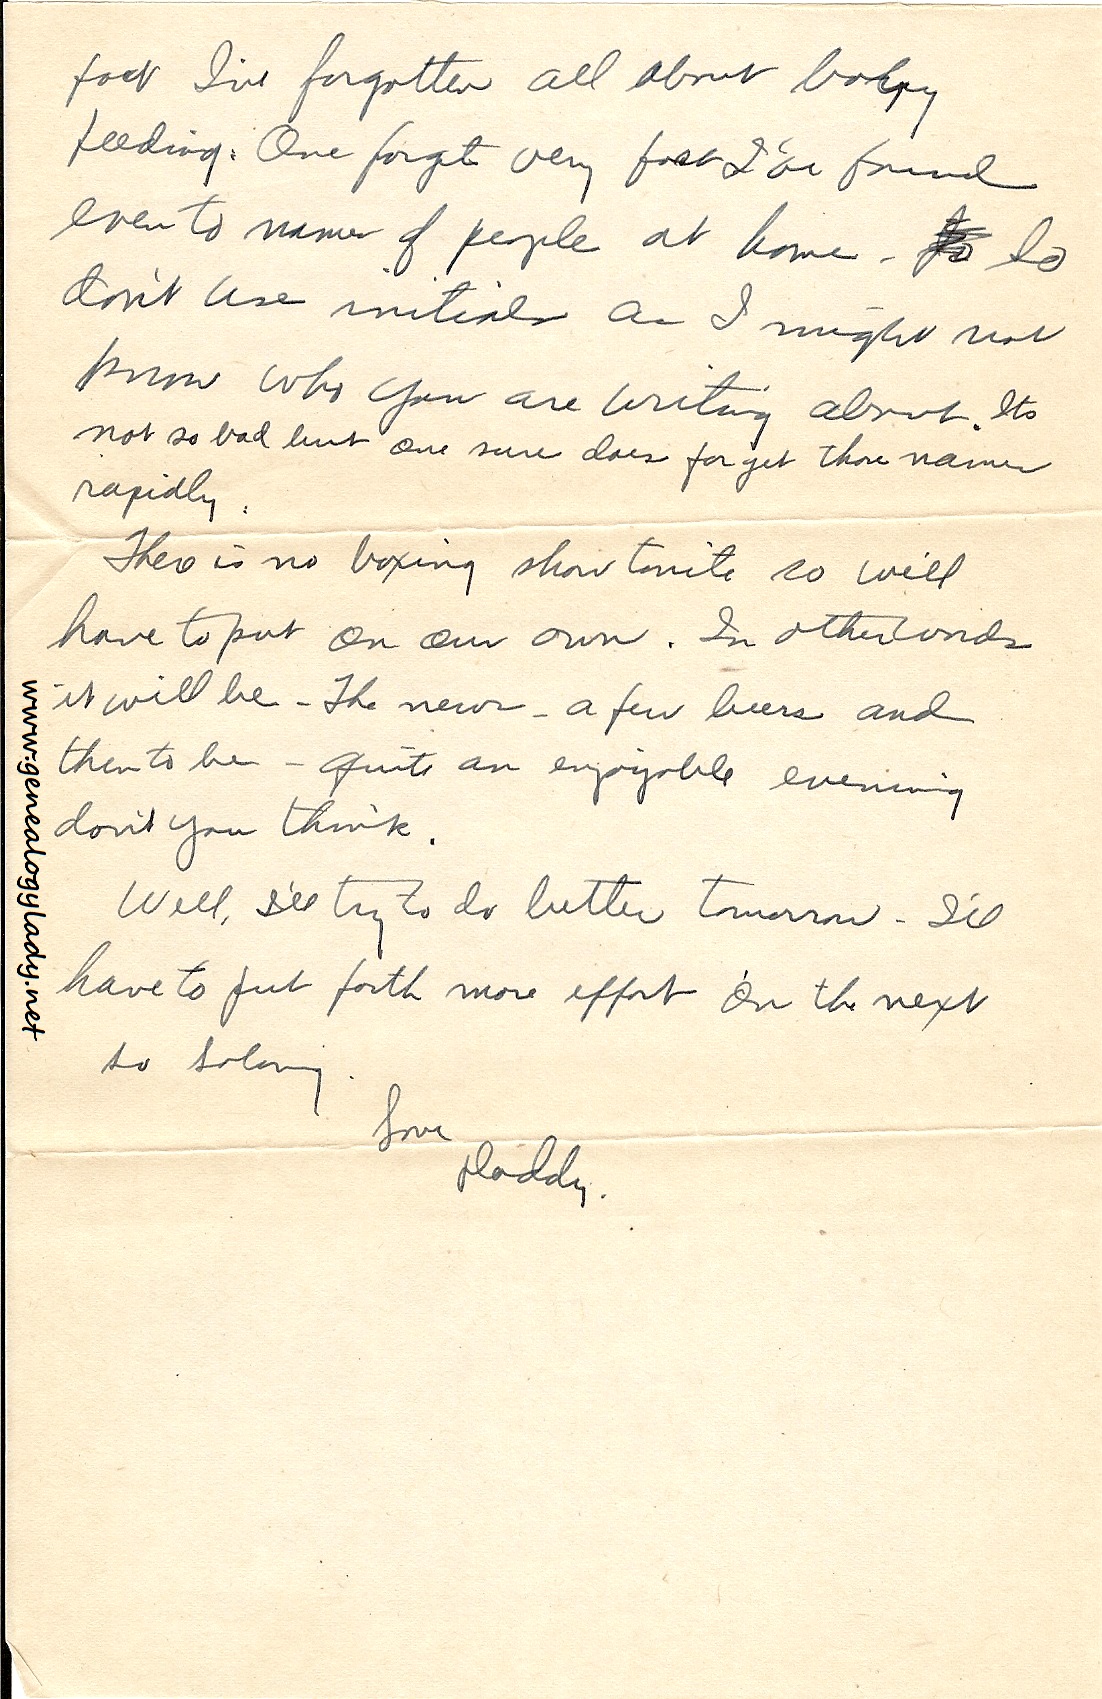 fact I've forgotten all about baby
feeding. One forgets very fast I've found
even to names of people at home - So
don't use initials as I might not
know who you are writing about. Its
not so bad but one sure does forget those names
rapidly.
There is no boxing show tonite so will
have to put on our own. In other words
it will be - The news - a few beers and
then to be - quite an enjoyable evening
don't you think.
Well, I'll try to do better tomorrow - I'll
have to put forth more effort on the next
so so long.
Love
Daddy.
www.genealogylady.net